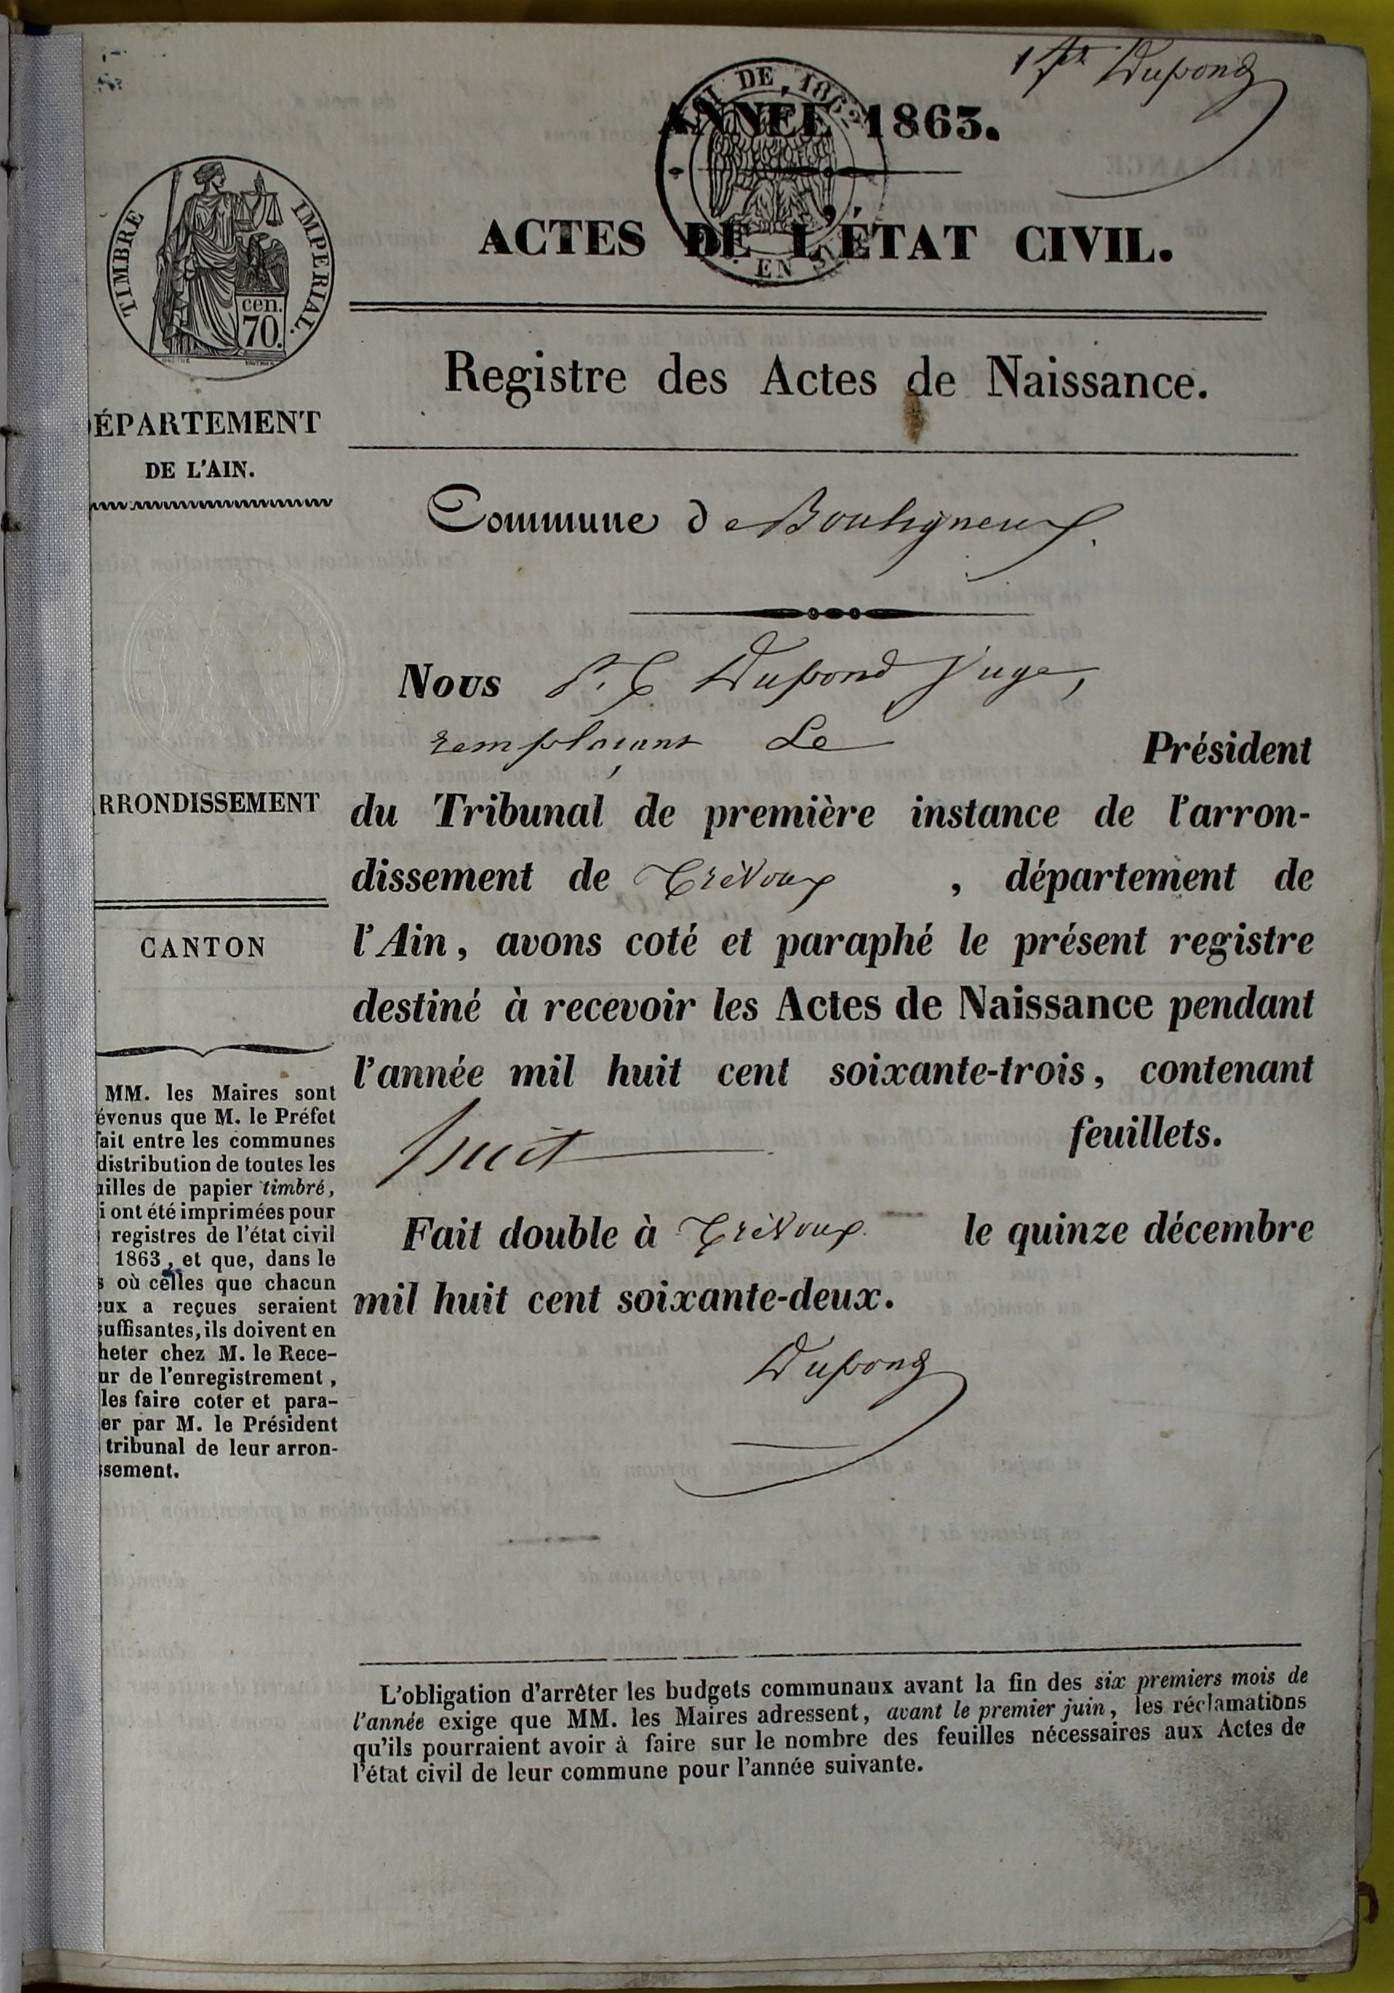 1er Dupond
ANNÉE 1863.
ACTES DE L'ÉTAT CIVIL.
TIMBRE IMPERIAL.
cen.
70.
Registre des Actes de Naissance.
ÉPARTEMENT
DE L'AIN.
Commune de Bouligneux.
Nous Dupond Juge,
remplaçant Le Président
du Tribunal de première instance de l'arron-
dissement de Trévoux, département de
l'Ain, avons coté et paraphé le présent registre
destiné à recevoir les Actes de Naissance pendant
l'année mil huit cent soixante-trois, contenant
huit feuillets.
Fait double à Trévoux le quinze décembre
mil huit cent soixante-deux.
Dupond
RRONDISSEMENT
CANTON
MM. les Maires sont
évenus que M. le Préfet
fait entre les communes
distribution de toutes les
uilles de papier timbré,
i ont été imprimées pour
registres de l'état civil
1863, et que, dans le
s où celles que chacun
eux a reçues seraient
suffisantes, ils doivent en
heter chez M. le Rece-
ur de l'enregistrement,
les faire coter et para-
er par M. le Président
tribunal de leur arron-
ssement.
L'obligation d'arrêter les budgets communaux avant la fin des six premiers mois de
l'année exige que MM. les Maires adressent, avant le premier juin, les réclamations
qu'ils pourraient avoir à faire sur le nombre des feuilles nécessaires aux Actes de
l'état civil de leur commune pour l'année suivante.